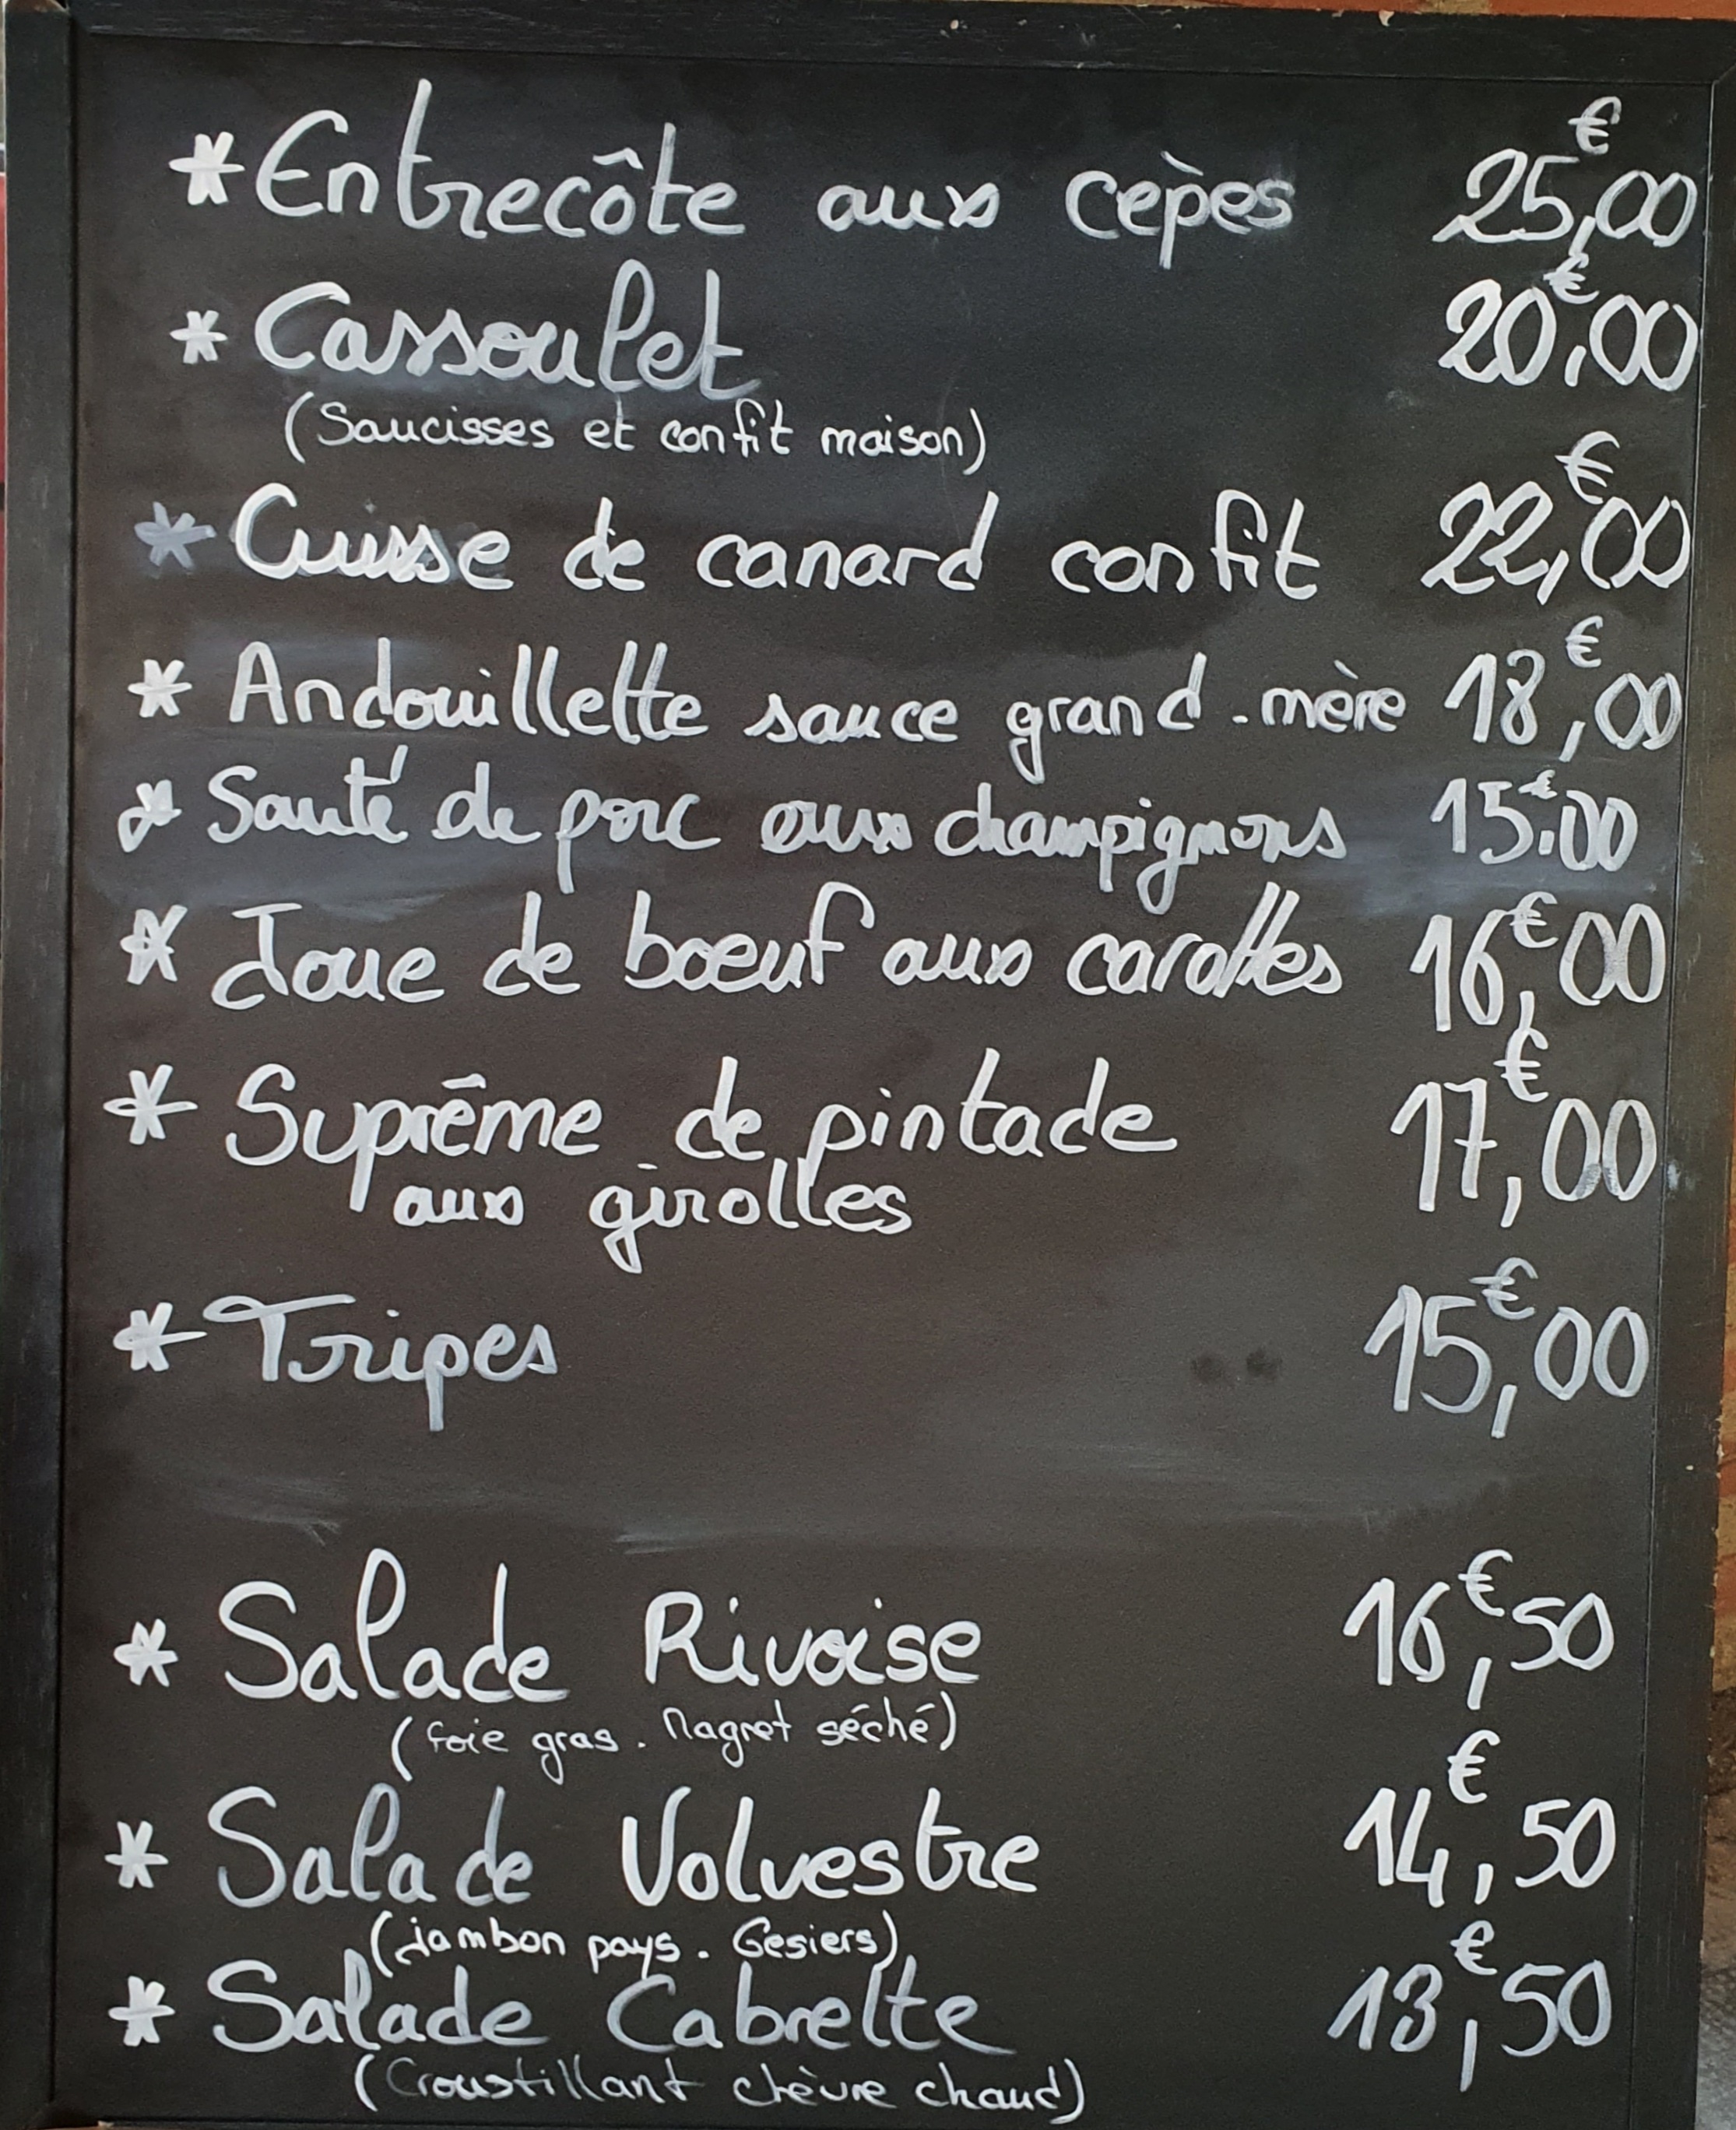 * Entrecôte aux cèpes 25,00 €
* Cassoulet 20,00 €
(Saucisses et confit maison)
* Cuisse de canard confit 22,00 €
* Andouillette sauce grand-mère 18,00 €
* Sauté de porc aux champignons 15,00 €
* Joue de boeuf aux carottes 16,00 €
* Suprême de pintade 17,00 €
aux girolles
* Tripes 15,00 €
* Salade Rivoise 16,50 €
(foie gras. Magret séché)
* Salade Volvestre 14,50 €
(jambon pays. Gesiers)
* Salade Cabrette 13,50 €
(Croustillant chèvre chaud)